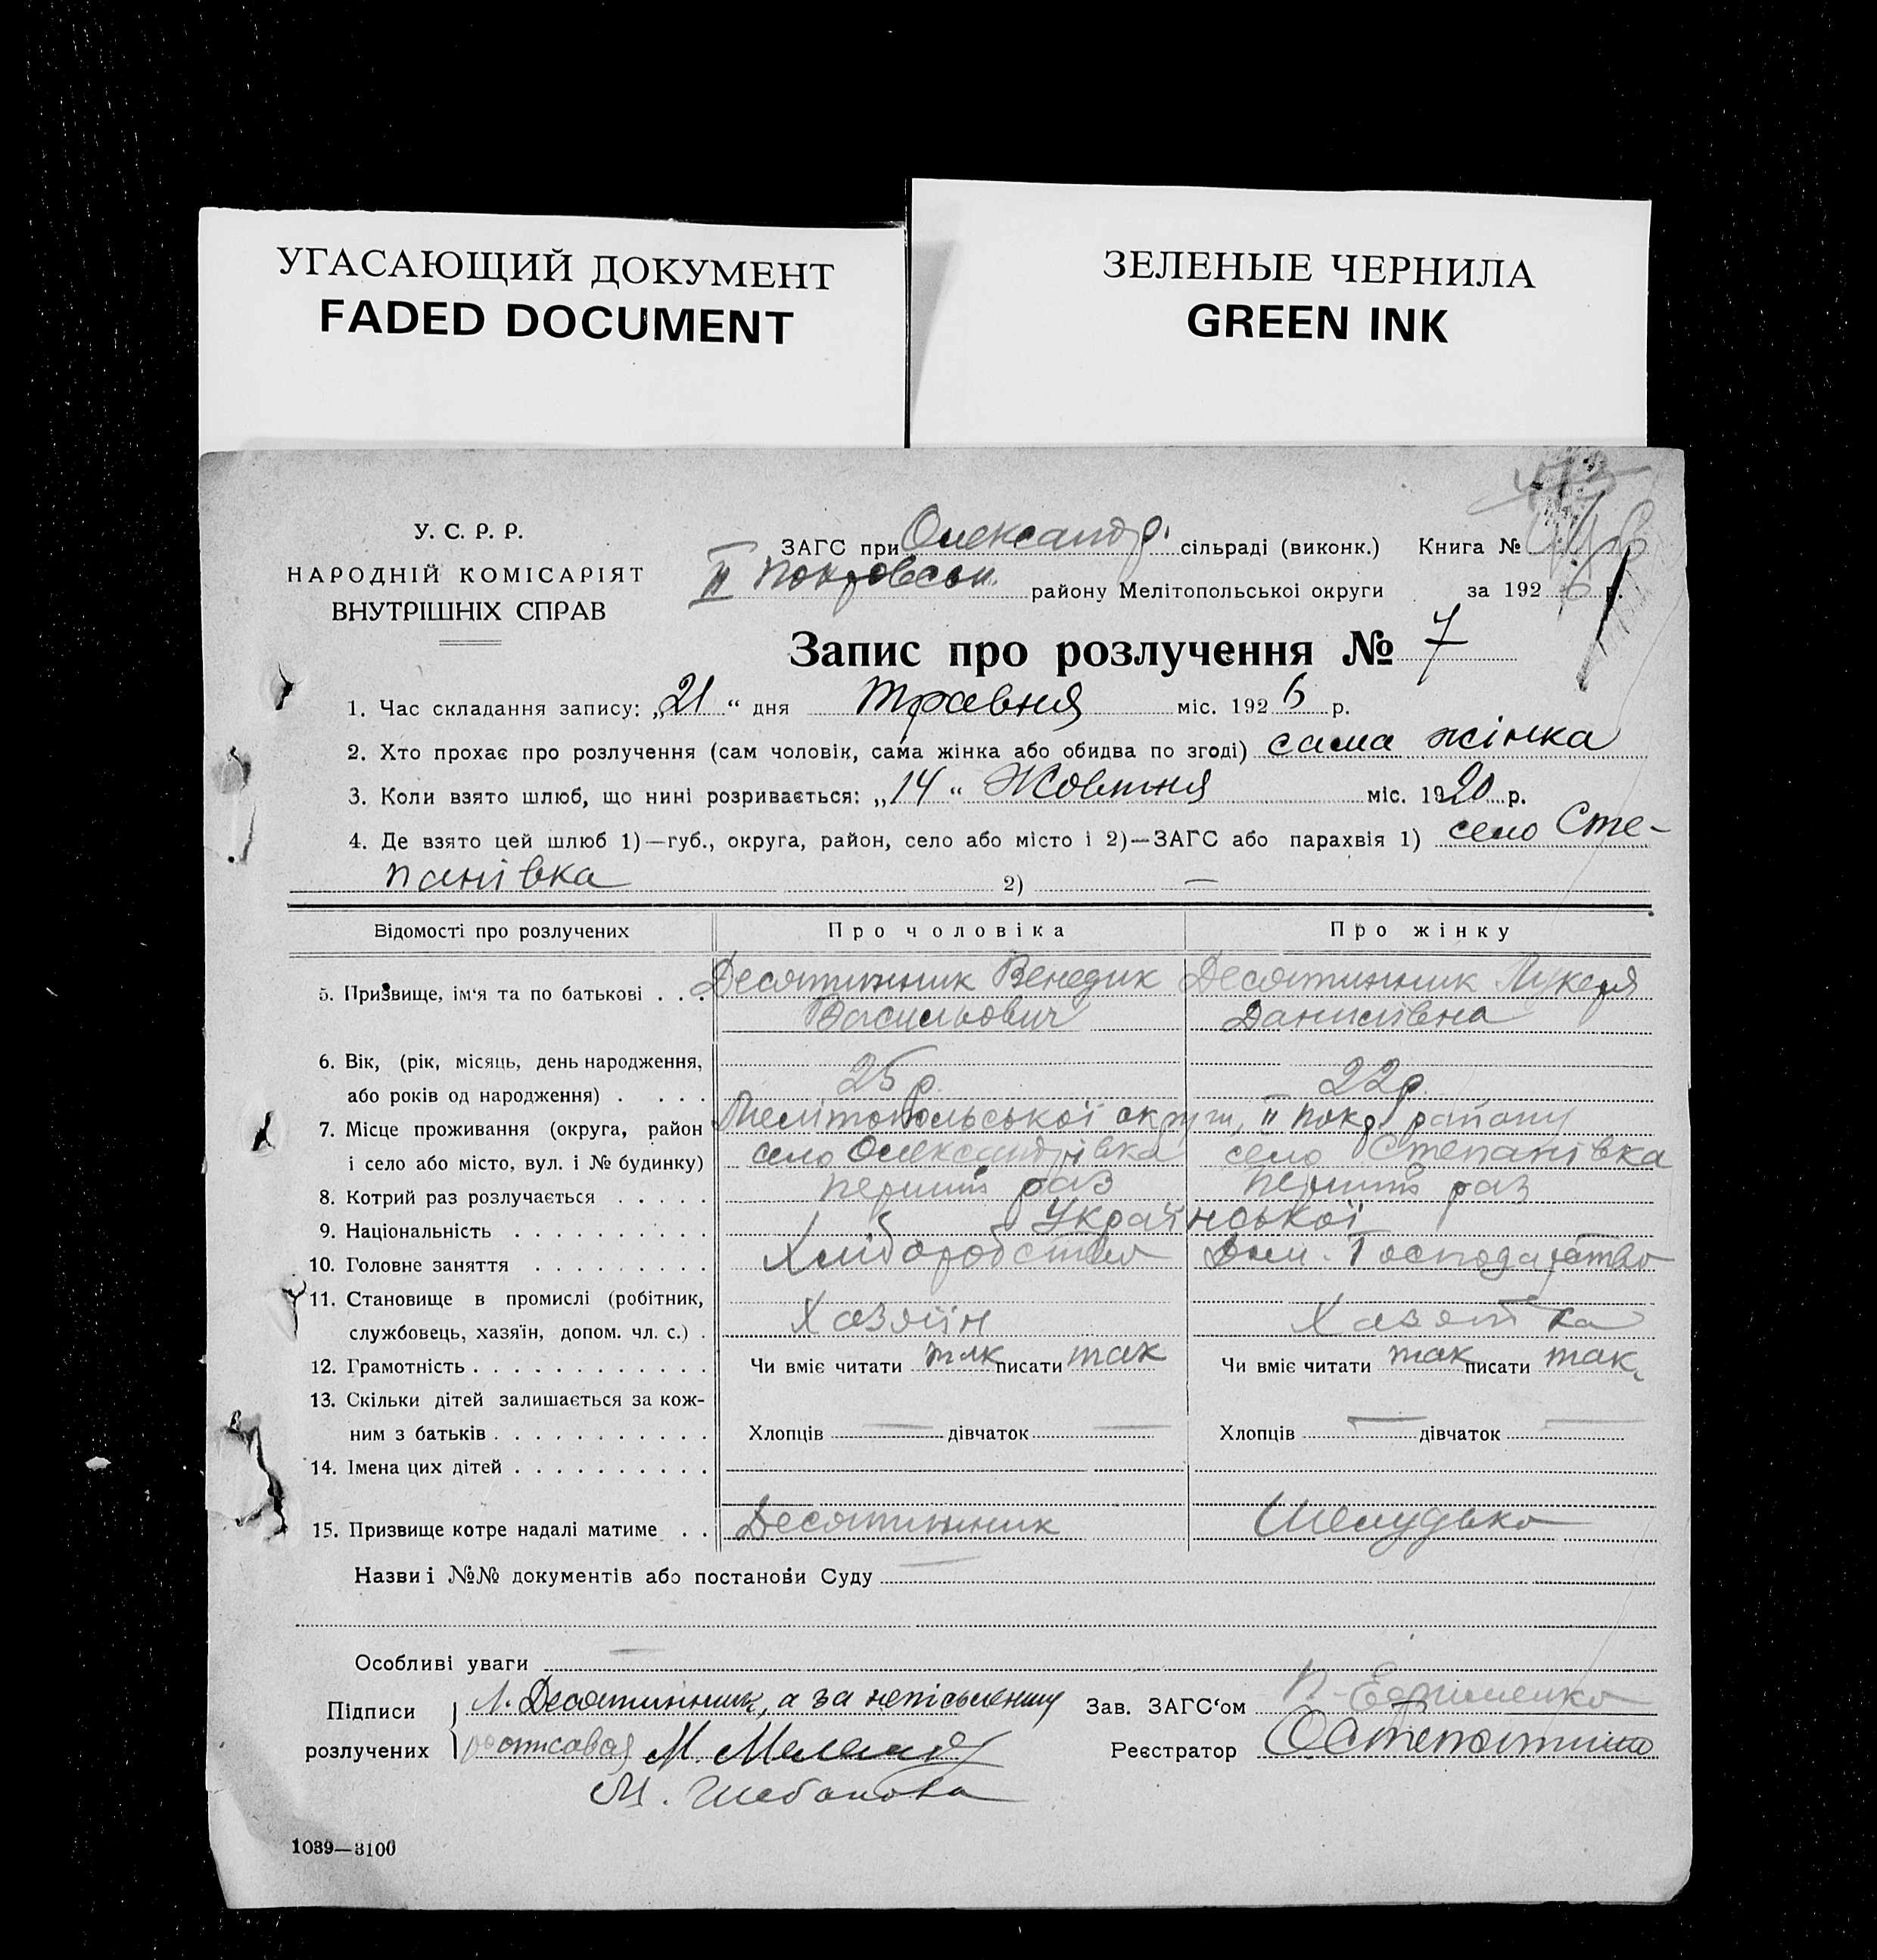 УГАСАЮЩИЙ ДОКУМЕНТ
FADED DOCUMENT
ЗЕЛЕНЫЕ ЧЕРНИЛА
GREEN INK
У. С. Р. Р.
НАРОДНІЙ КОМІСАРІЯТ
ВНУТРІШНІХ СПРАВ
ЗАГС при Олександр. сільраді (виконк.) Книга №
II Покровськ. району Мелітопольської округи за 1926 р.
Запис про розлучення № 7
1. Час складання запису: „21“ дня травня міс. 1926 р.
2. Хто прохає про розлучення (сам чоловік, сама жінка або обидва по згоді) сама жінка
3. Коли взято шлюб, що нині розривається: „14“ Жовтня міс. 1920 р.
4. Де взято цей шлюб 1)—губ., округа, район, село або місто і 2)—ЗАГС або парахвія 1) село Сте-
панівка 2) —
Відомості про розлучених Про чоловіка Про жінку
5. Призвище, ім'я та по батькові . . . Десятинник Венедик Десятинник Лукеря
Васильович Данилівна
6. Вік, (рік, місяць, день народження,
або років од народження) . . . . 25 р. 22 р.
7. Місце проживання (округа, район Мелітопольської округи, II Покр. району
і село або місто, вул. і № будинку) село Олександрівка село Степанівка
8. Котрий раз розлучається . . . . . перший раз перший раз
9. Національність . . . . . . . . . . Української
10. Головне заняття . . . . . . . . . Хліборобство Дом. Господарство
11. Становище в промислі (робітник,
службовець, хазяїн, допом. чл. с.) . Хазяїн Хазяйка
12. Грамотність . . . . . . . . . . . . Чи вміє читати так писати так Чи вміє читати так писати так
13. Скільки дітей залишається за кож-
ним з батьків . . . . . . . . . . . Хлопців — дівчаток — Хлопців — дівчаток —
14. Імена цих дітей . . . . . . . . . .
15. Призвище котре надалі матиме . . Десятинник Шелудько
Назви і №№ документів або постанови Суду —
Особливі уваги —
Підписи Л. Десятинник, а за непісьменну Зав. ЗАГС'ом П. Ефименко
розлучених М. Реєстратор
М.
1039—3100